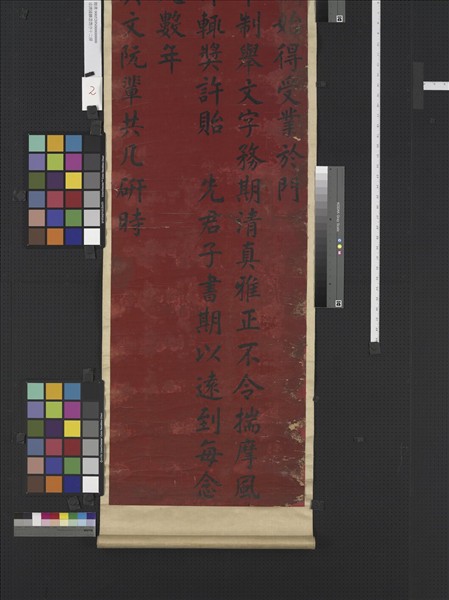 始得受業於門
制舉文字務期清真雅正不令揣摩風
輒獎許貽 先君子書期以遠到每念
數年
文阮輩共几硏時
2